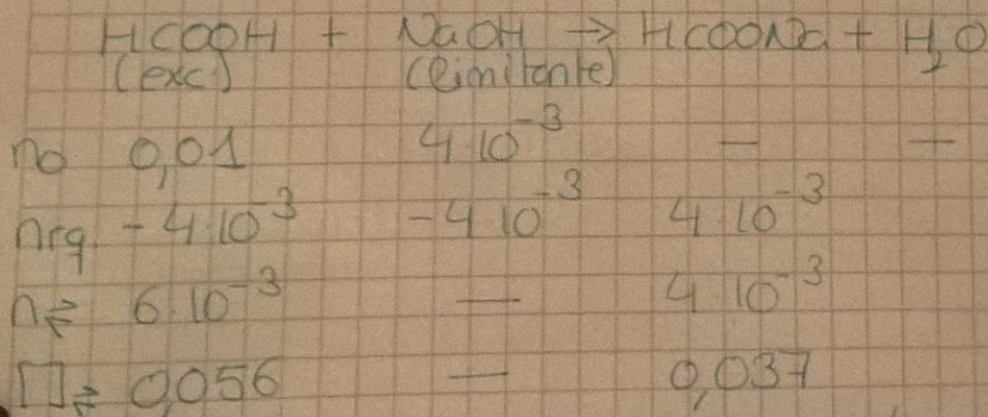 HCOOH + NaOH → HCOONa + H₂O
(exc.) (limitante)
no 0,01 4·10⁻³ — —
nrq -4·10⁻³ -4·10⁻³ 4·10⁻³
n⇄ 6·10⁻³ — 4·10⁻³
[]⇄ 0,056 — 0,037